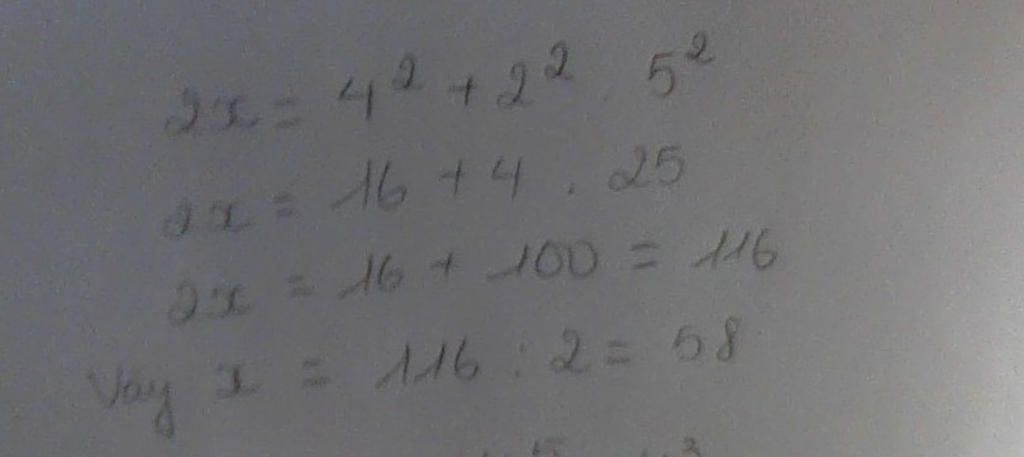 2x = 4² + 2² . 5²
2x = 16 + 4 . 25
2x = 16 + 100 = 116
Vay x = 116 : 2 = 58